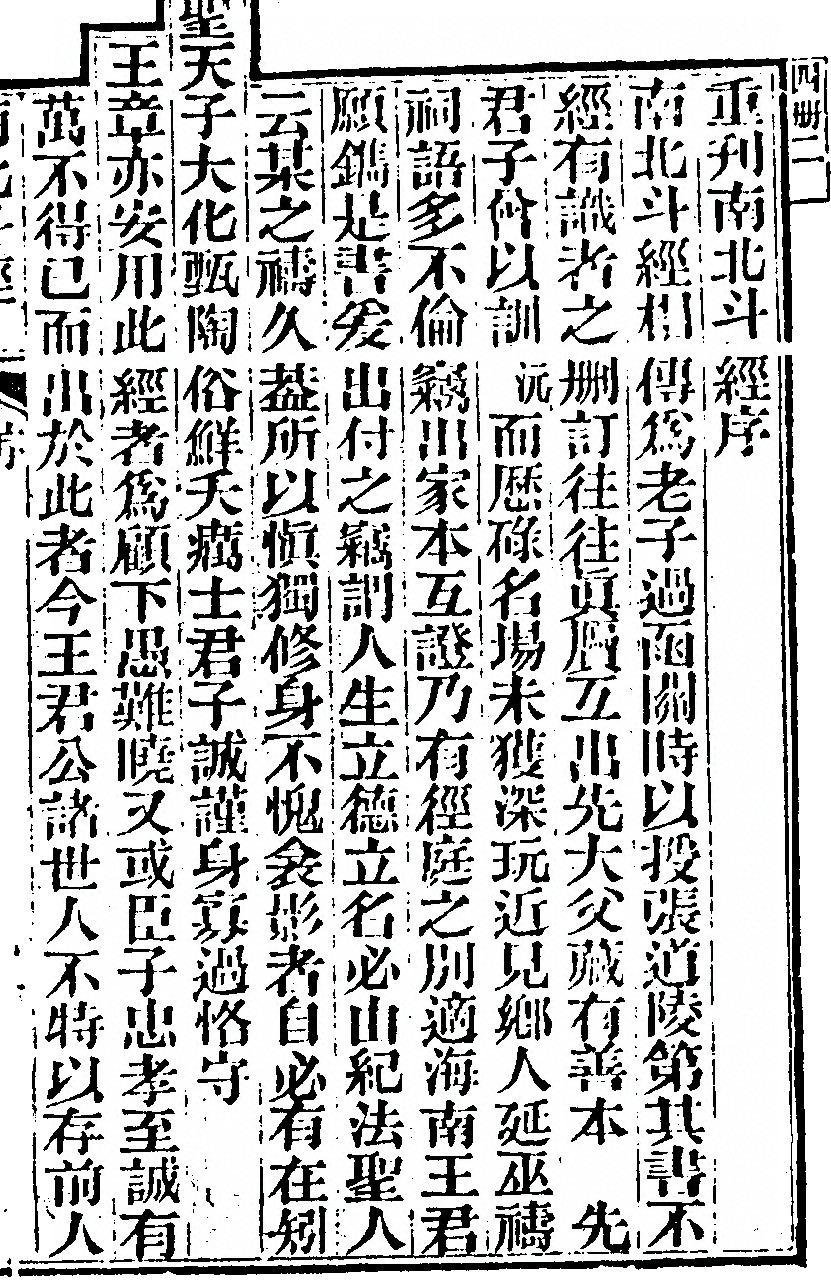 四冊二
重刊南北斗經序
南北斗經相傳爲老子過函關時以授張道陵第其書不
經有識者之刪訂往往眞贋互出先大父藏有善本　先
君子曾以訓　沅而歷碌名場未獲深玩近見鄉人延巫禱
祠語多不倫竊出家本互證乃有徑庭之別適海南王君
願鐫是書爰出付之竊謂人生立德立名必由紀法聖人
云某之禱久葢所以愼獨修身不愧衾影者自必有在矧
聖天子大化甄陶俗鮮夭癘士君子誠謹身寡過恪守
王章亦安用此經者爲顧下愚難曉又或臣子忠孝至誠有
萬不得已而出於此者今王君公諸世人不特以存前人